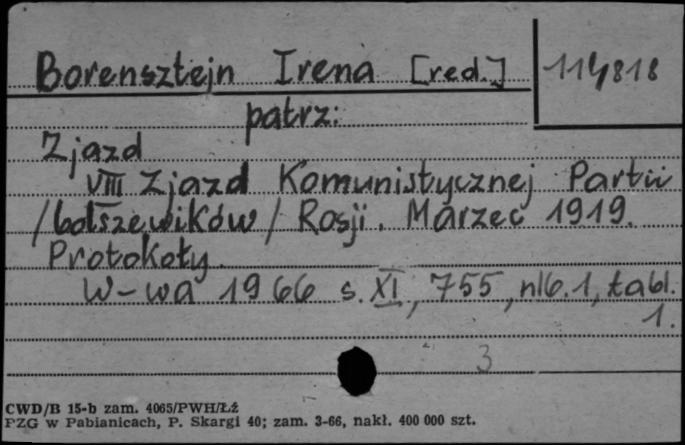 Borensztejn Irena [red.] 114818
patrz:
Zjazd
VIII Zjazd Komunistycznej Partii
/bolszewików/ Rosji. Marzec 1919.
Protokoły.
W-wa 1966 s. XI, 755, nlb. 1, tabl.
1.
3
CWD/B 15-b zam. 4065/PWH/ŁŹ
PZG w Pabianicach, P. Skargi 40; zam. 3-66, nakł. 400 000 szt.